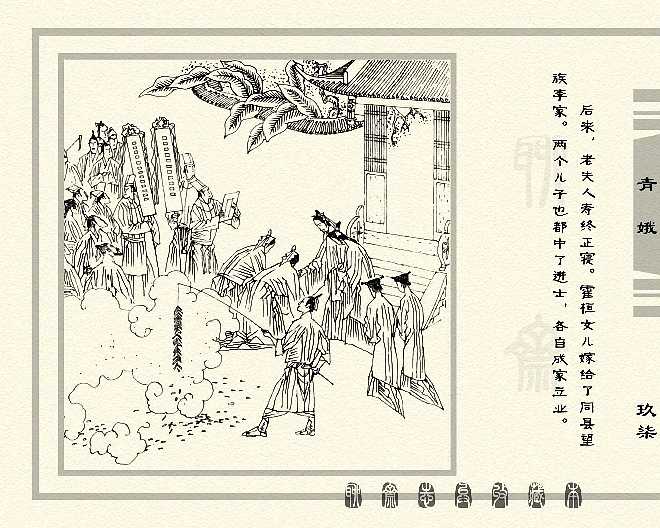 后来，老夫人寿终正寝。霍桓女儿嫁给了同县望
族李家。两个儿子也都中了进士，各自成家立业。
青娥
玖柒